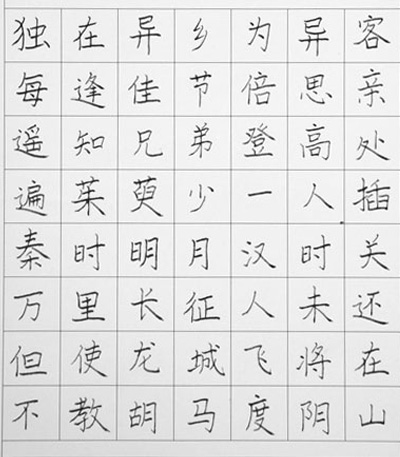 独在异乡为异客
每逢佳节倍思亲
遥知兄弟登高处
遍茱萸少一人插
秦时明月汉时关
万里长征人未还
但使龙城飞将在
不教胡马度阴山